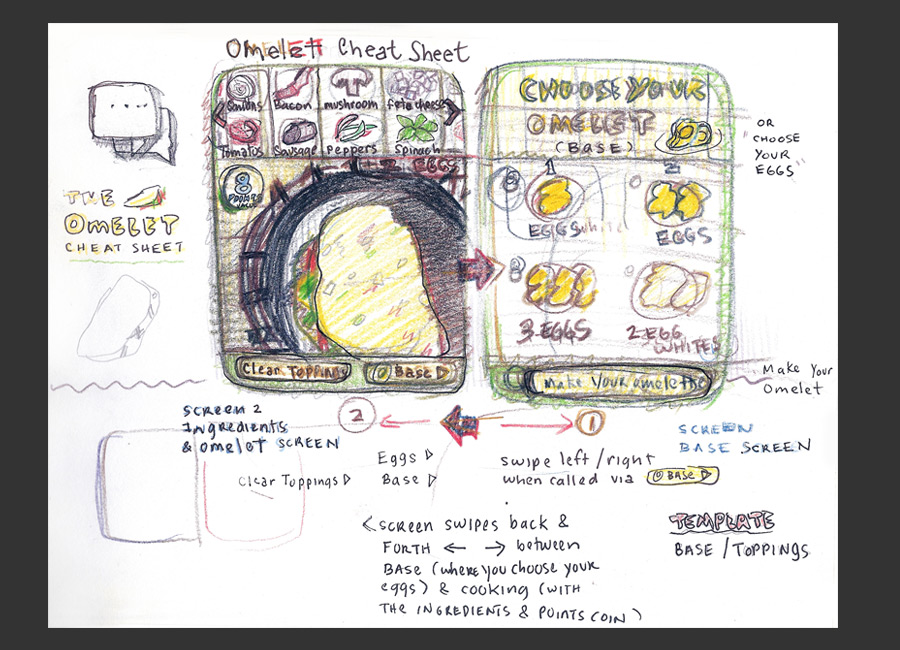 Omelett Cheat Sheet
Onions Bacon mushroom feta cheese
Tomatos Sausage Peppers Spinach
EGGS
8
Clear Toppings
Base
CHOOSE YOUR
OMELET
(BASE)
1
2
EGGS white
EGGS
3 EGGS
2 EGG
WHITES
Make Your omelette
OR
CHOOSE
YOUR
EGGS"
THE
OMELET
CHEAT SHEET
Make Your
Omelet
SCREEN 2
Ingredients
& omelet SCREEN
2
1
SCREEN
BASE SCREEN
Clear Toppings
Eggs
Base
swipe left/right
when called via BASE
SCREEN SWIPES back &
FORTH ← → between
BASE (where you choose your
eggs) & cooking (WITH
THE INGREDIENTS & POINTS COIN)
TEMPLATE
BASE / TOPPINGS